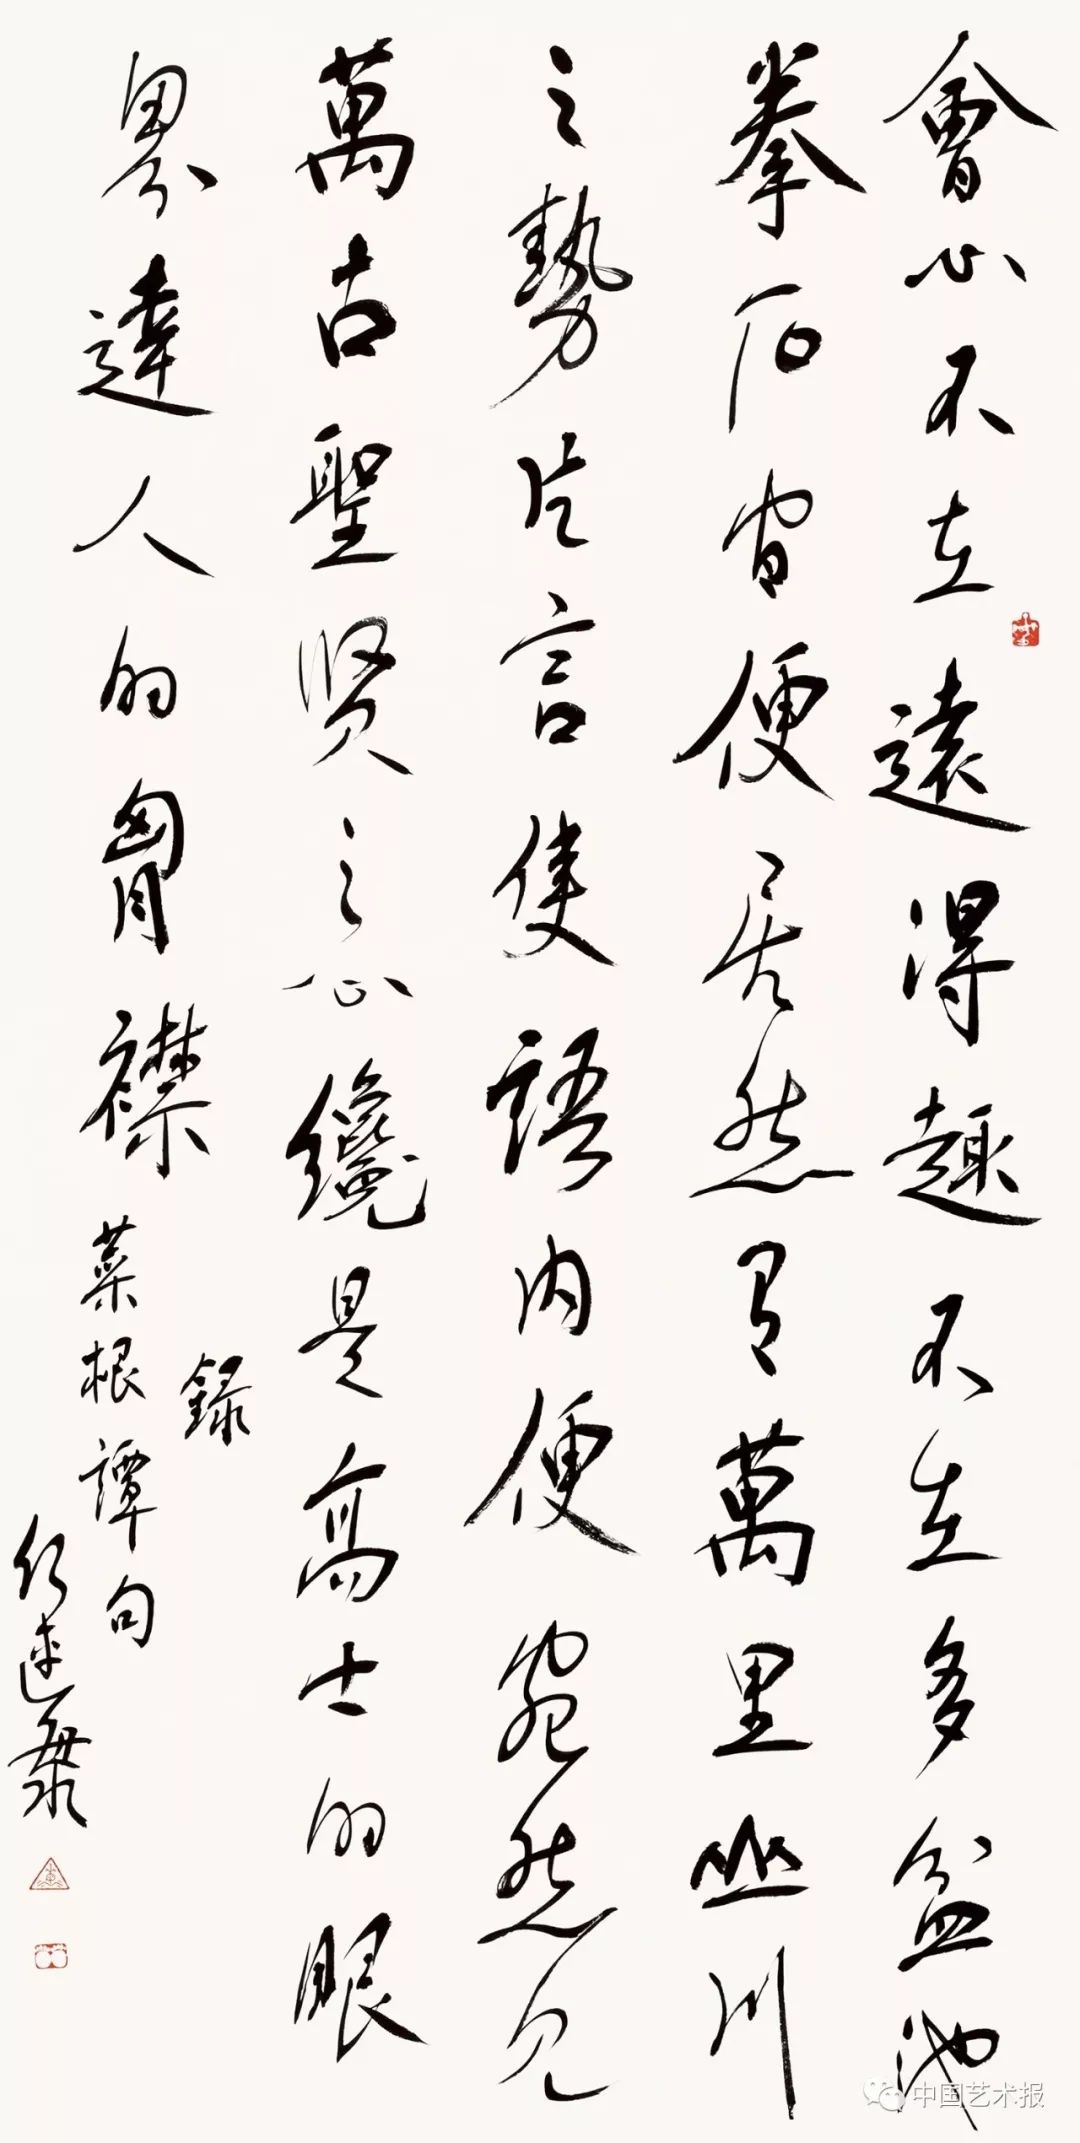 會心不在遠得趣不在多盆池
拳石間便居然有萬里山川
之勢片言隻語內便宛然見
萬古聖賢之心纔是高士的眼
界達人的胷襟
錄
菜根譚句
中国艺术报